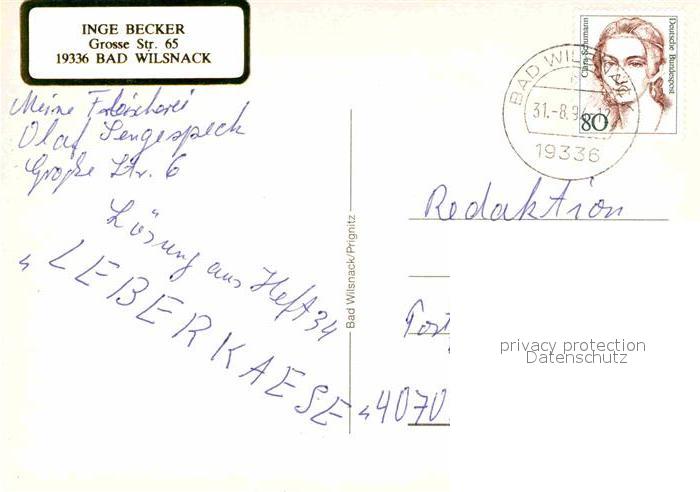 INGE BECKER
Grosse Str. 65
19336 BAD WILSNACK
Clara Schumann
Deutsche Bundespost
80
BAD WILSNACK
31.-8.9
19336
Meine Fleischerei
Olaf Sengespeck
Große Str. 6
Lösung aus Heft 34
"LEBERKAESE"
Bad Wilsnack/Prignitz
Redaktion
4070
privacy protection
Datenschutz